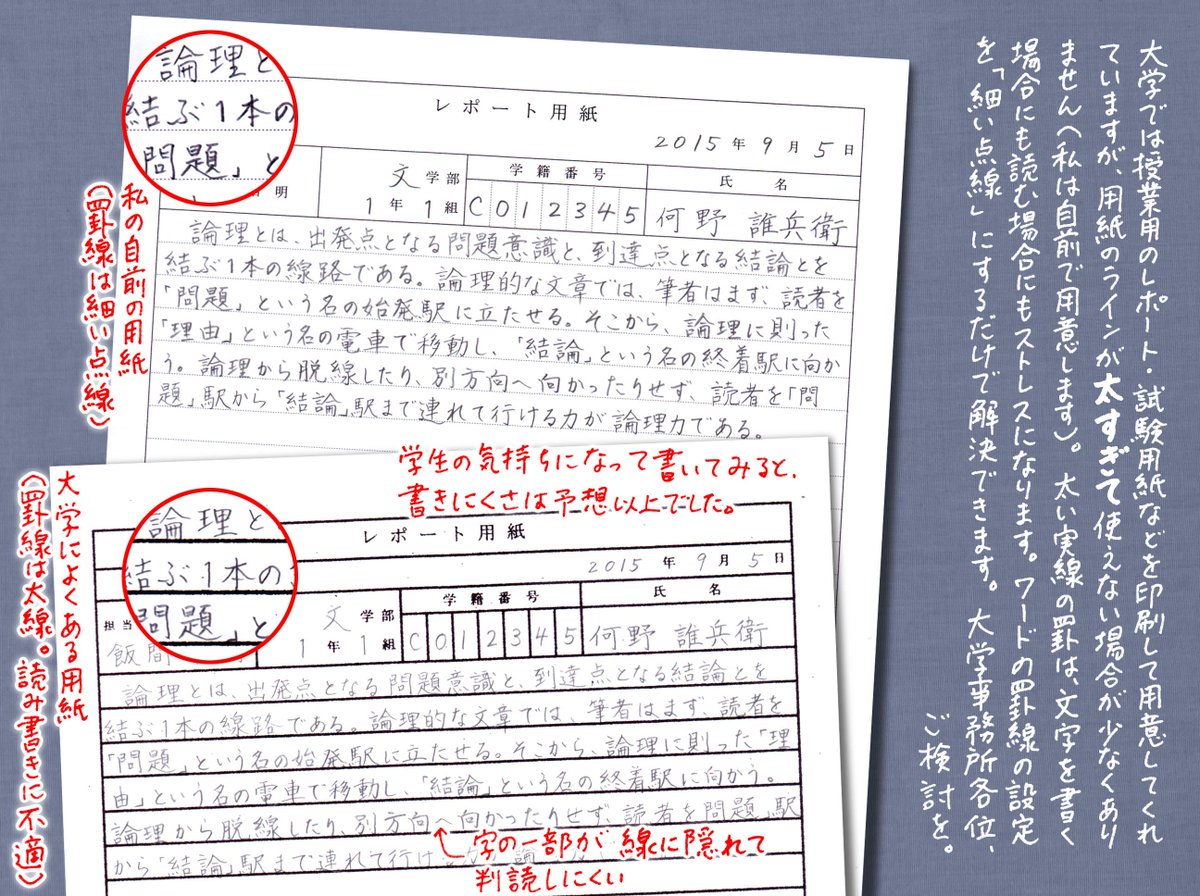 大学では授業用のレポート・試験用紙などを印刷して用意してくれ
ていますが、用紙のラインが太すぎて使えない場合が少なくあり
ません(私は自前で用意します)。太い実線の罫は、文字を書く
場合にも読む場合にもストレスになります。ワードの罫線の設定
を「細い点線」にするだけで解決できます。大学事務所各位、
ご検討を。
論理と
結ぶ1本の
問題」と
私の自前の用紙
(罫線は細い点線)
レポート用紙
2015年9月5日
明
文学部
1年1組
学籍番号
C012345
氏名
何野 誰兵衛
論理とは、出発点となる問題意識と、到達点となる結論とを
結ぶ1本の線路である。論理的な文章では、筆者はまず、読者を
「問題」という名の始発駅に立たせる。そこから、論理に則った
「理由」という名の電車で移動し、「結論」という名の終着駅に向か
う。論理から脱線したり、別方向へ向かったりせず、読者を「問
題」駅から「結論」駅まで連れて行ける力が論理力である。
学生の気持ちになって書いてみると、
書きにくさは予想以上でした。
大学によくある用紙
(罫線は太線。読み書きに不適)
論理と
結ぶ1本の
問題」と
レポート用紙
2015年9月5日
担当
飯間
文学部
1年1組
学籍番号
C012345
氏名
何野 誰兵衛
論理とは、出発点となる問題意識と、到達点となる結論とを
結ぶ1本の線路である。論理的な文章では、筆者はまず、読者を
「問題」という名の始発駅に立たせる。そこから、論理に則った「理
由」という名の電車で移動し、「結論」という名の終着駅に向かう。
論理から脱線したり、別方向へ向かったりせず、読者を「問題」駅
から「結論」駅まで連れて行け
字の一部が線に隠れて
判読しにくい